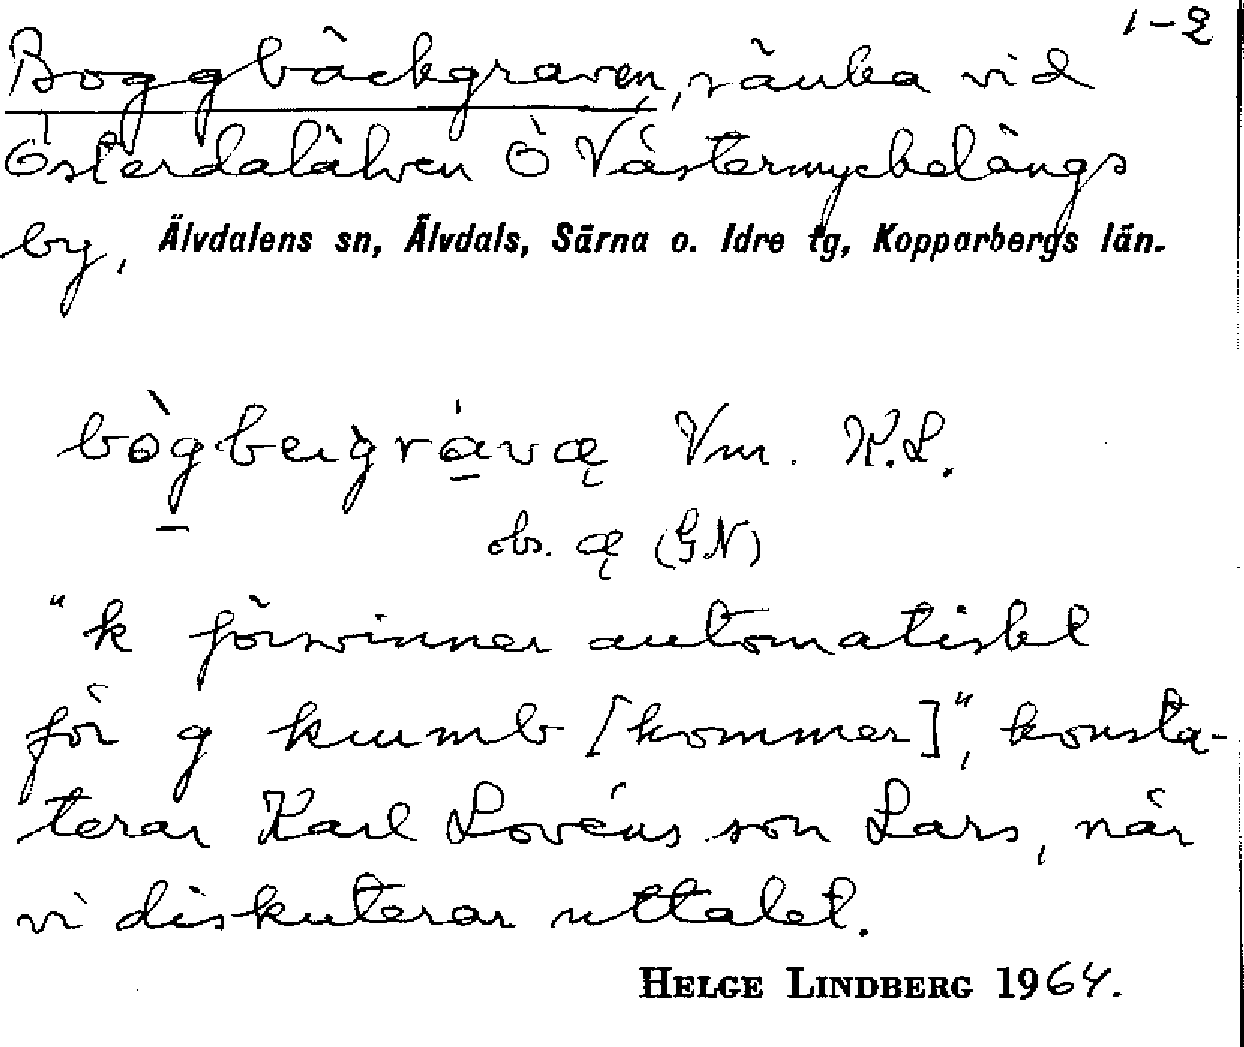 1-2
Boggbäckgraven, sänka vid
Österdalälven Ö Västermyckelängs
by, Älvdalens sn, Älvdals, Särna o. Idre tg, Kopparbergs län.
bògbergrávæ̨ Vm. K.L.
obs. æ̨ (GN)
"k försvinner automatiskt
för g kumb [kommer]", konsta-
terar Karl Lovéns son Lars, när
vi diskuterar uttalet.
HELGE LINDBERG 1964.